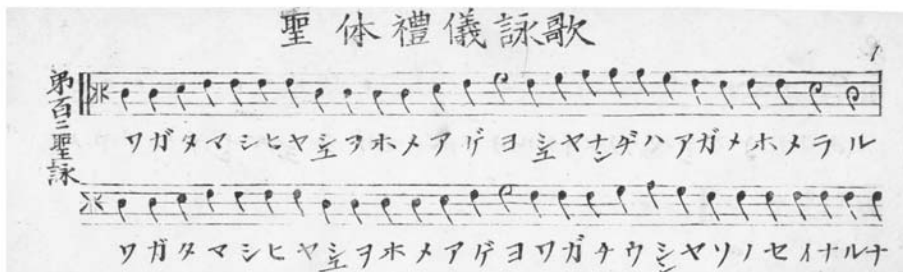 聖体禮儀詠歌
1
弟百二聖詠
ワガタマシヒヤシユヲホメアゲヨシユヤナンヂハアガメホメラル
ワガタマシヒヤシユヲホメアゲヨワガチウシンヤソノセイナルナ